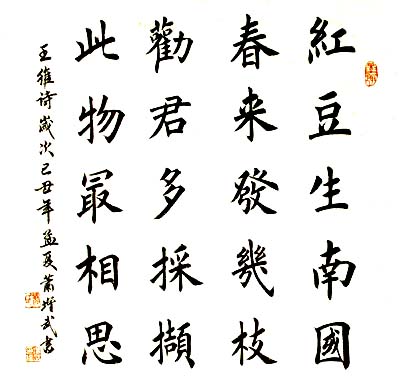 紅豆生南國
春来發幾枝
勸君多採擷
此物最相思
王維诗歲次己丑年孟夏蕭武書